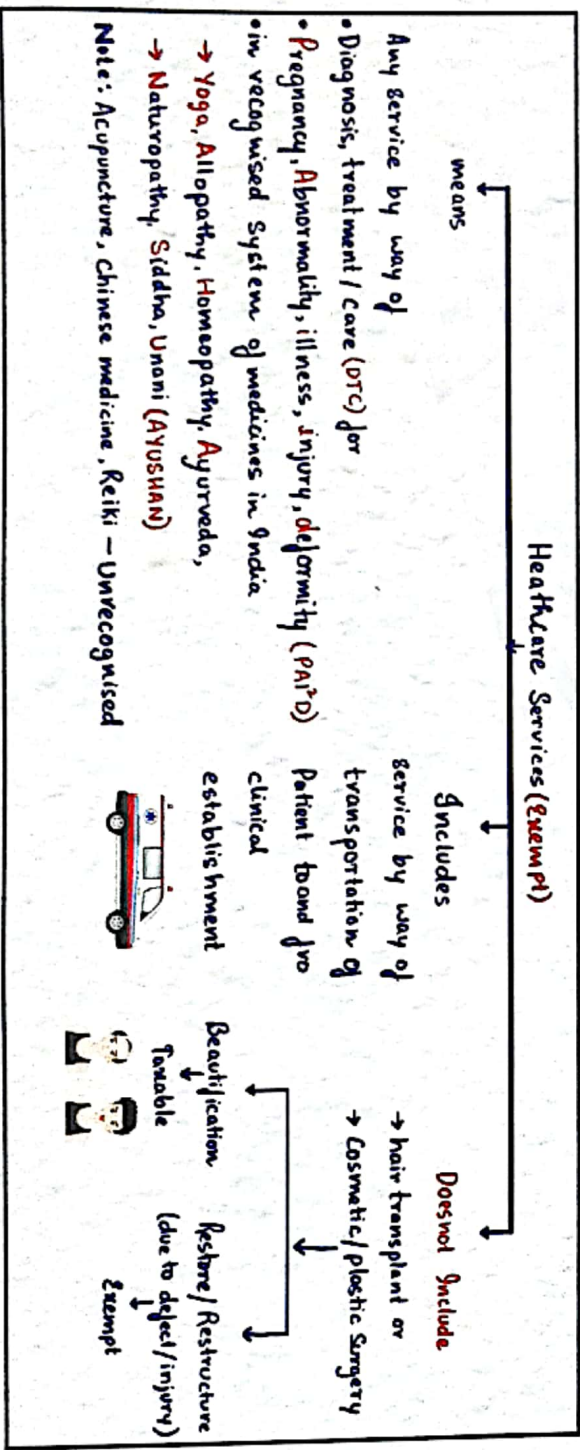 Heathcare Services (Exempt)
means
Any service by way of
• Diagnosis, treatment / Care (DTC) for
• Pregnancy, Abnormality, illness, injury, deformity (PAI²D)
• in recognised System of medicines in India
→ Yoga, Allopathy, Homeopathy, Ayurveda,
→ Naturopathy, Siddha, Unani (AYUSHAN)
Note: Acupuncture, Chinese medicine, Reiki - Unrecognised
Includes
Service by way of
transportation of
Patient toand fro
clinical
establishment
Doesnot Include
→ hair transplant or
→ Cosmetic / plastic Surgery
Beautification
Taxable
Restore / Restructure
(due to defect / injury)
Exempt